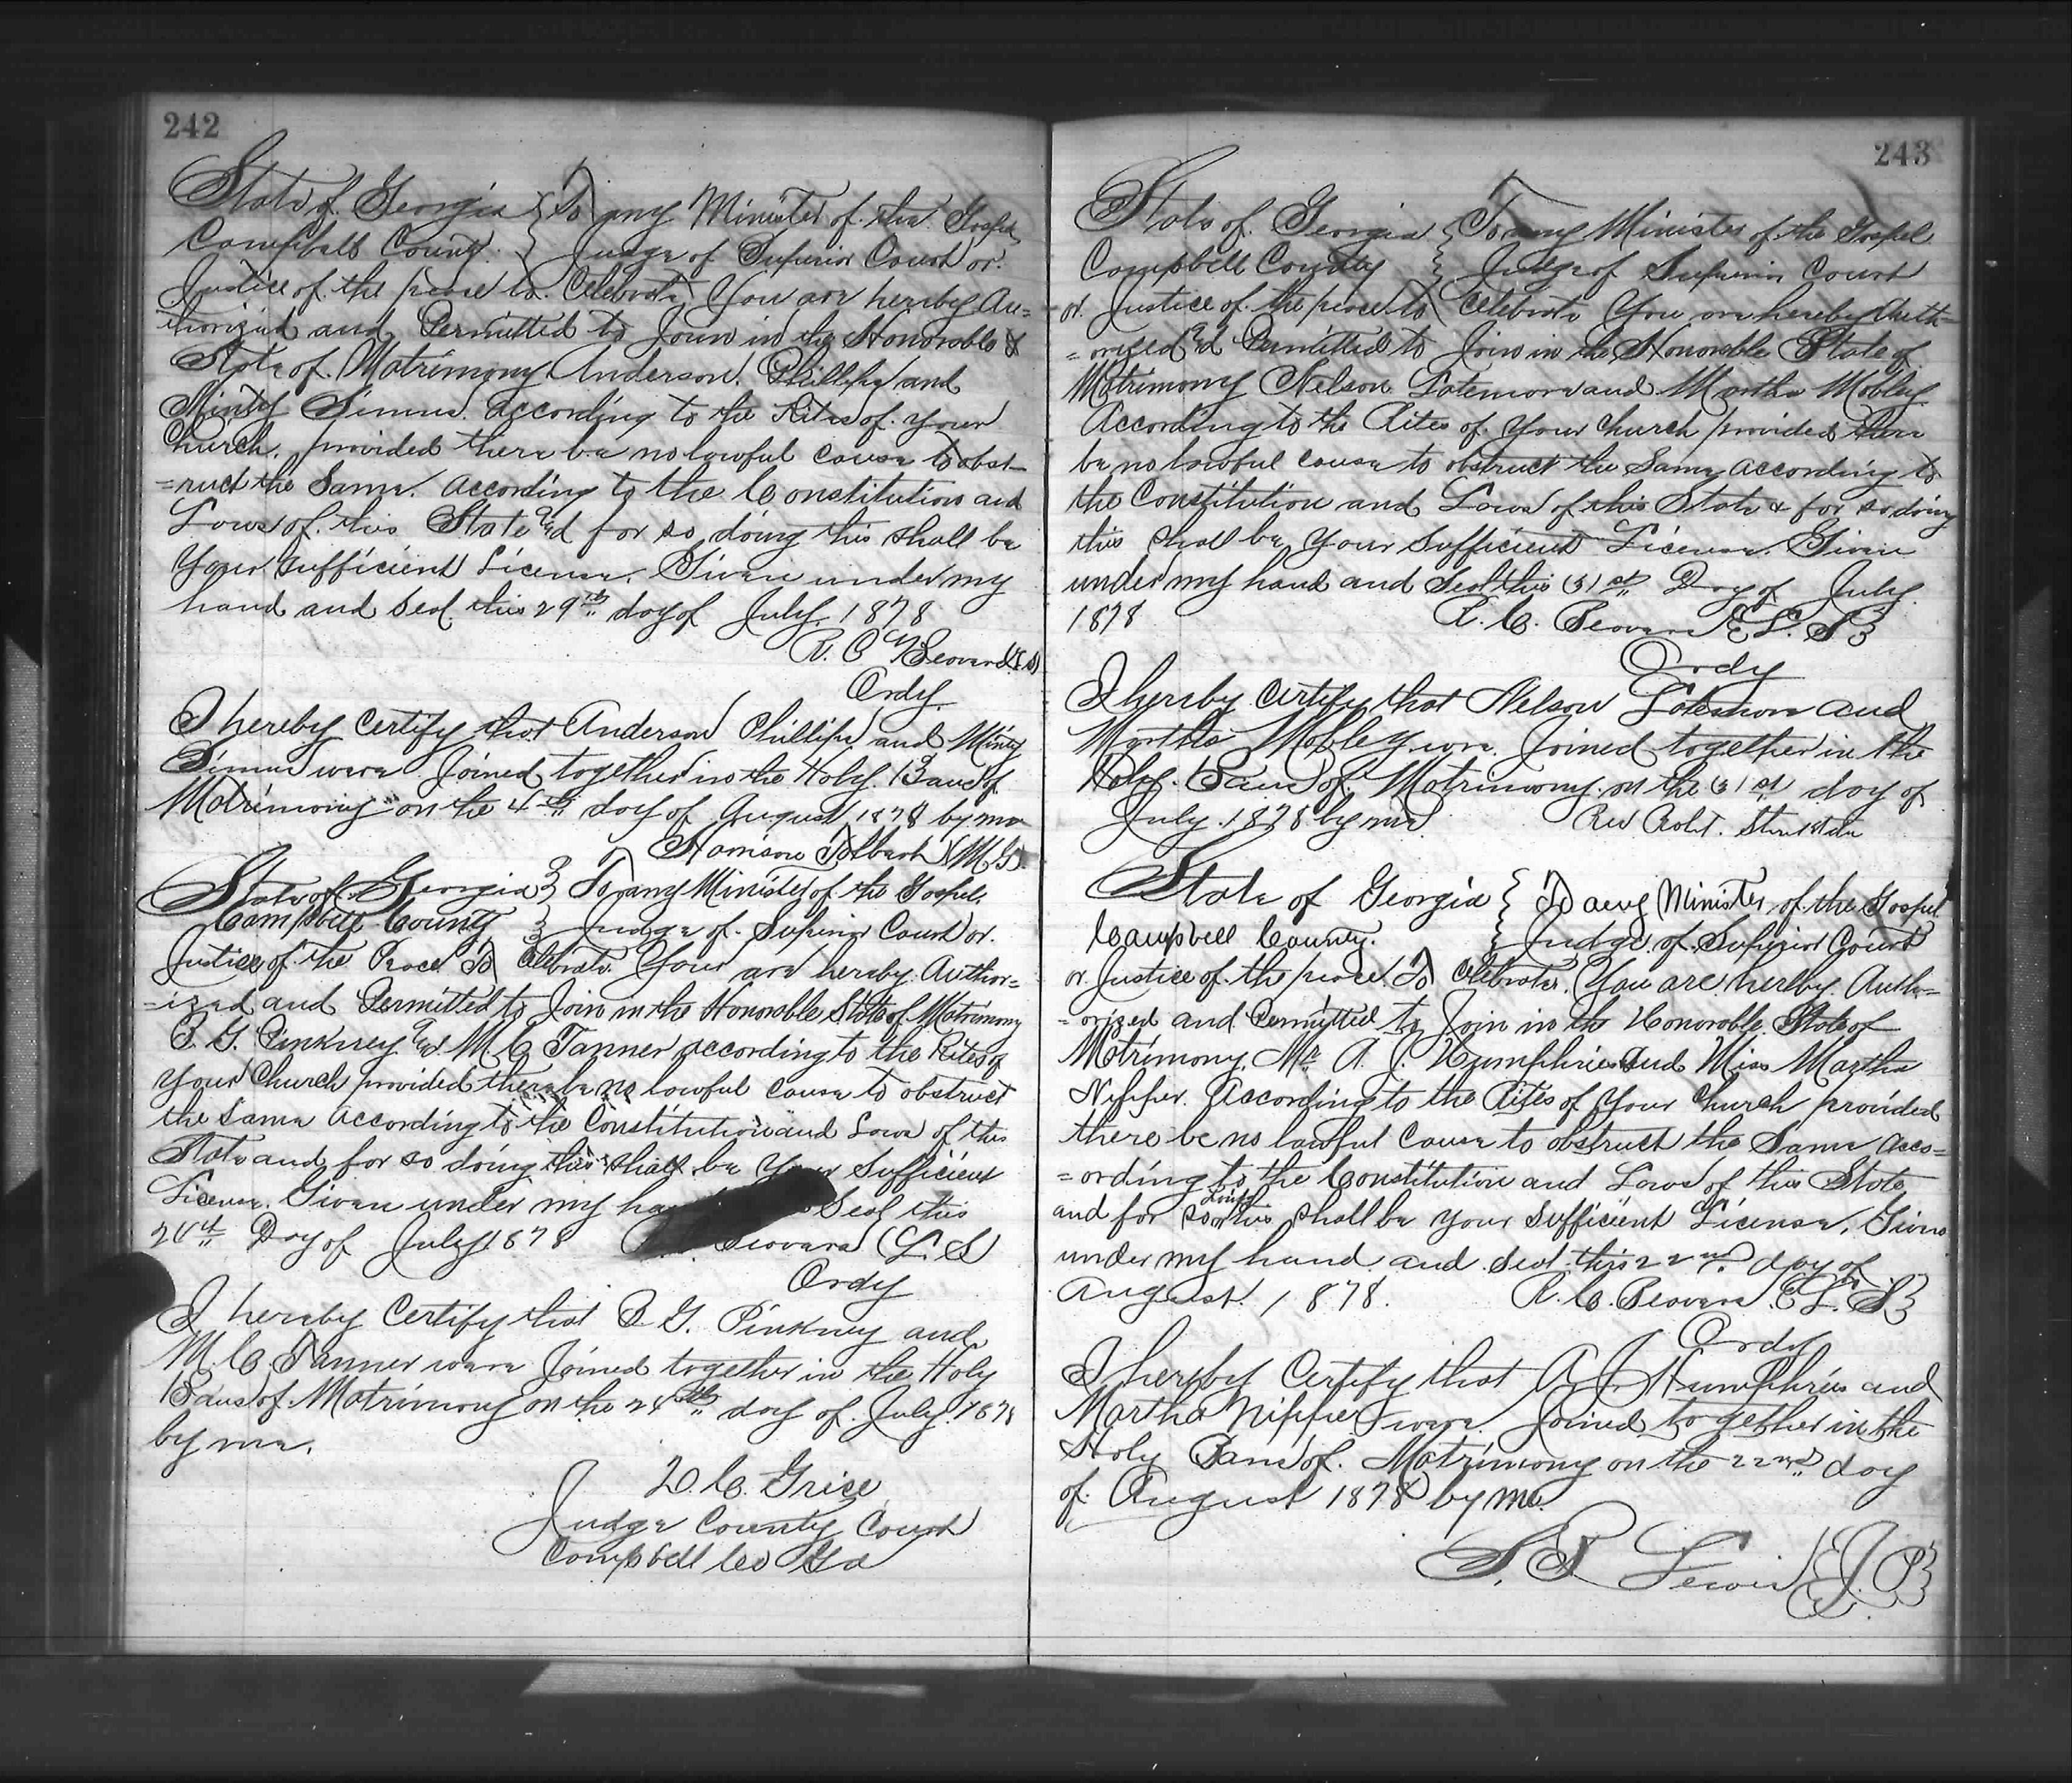 242
State of Georgia } To any Minister of the Gospel
Campbell County } Judge of Superior Court or
Justice of the peace to Celebrate. You are hereby Au=
thorized and Permitted to Join in the Honorable
State of Matrimony Anderson Phillips and
Minty Simms according to the Rites of your
Church, provided there be no lawful cause to obst-
=ruct the Same. according to the Constitution and
Laws of this State and for so doing this shall be
Your sufficient License. Given under my
hand and seal this 29th day of July 1878
R. C. Beavers (LS)
Ordy
I hereby Certify that Anderson Phillips and Minty
Simms were Joined together in the Holy Bans of
Matrimony on the 4th day of August 1878 by me
Harrison (M G)
State of Georgia } To any Minister of the Gospel
Campbell County } Judge of Superior Court or
Justice of the Peace To Celebrate Your are hereby Author=
=ized and Permitted to Join in the Honorable State of Matrimony
B. G. Pinkney and M. C. Tanner according to the Rites of
your Church provided there be no lawful cause to obstruct
the same according to the Constitution and Laws of this
State and for so doing this shall be Your Sufficient
License. Given under my Seal this
Day of July 1878 Beavers (L. S)
Ordy
I hereby Certify that B. G. Pinkney and
M. C. Tanner were Joined together in the Holy
Bans of Matrimony on the 24th day of July 1878
by me.
D. C. Grice
Judge County Court
Campbell Co Ga
243
State of Georgia } To any Minister of the Gospel
Campbell County } Judge of Superior Court
or Justice of the peace to Celebrate You are hereby Auth=
=orized and Permitted to Join in the Honorable State of
Matrimony Nelson Latemore and Martha Mobley
According to the Rites of Your Church provided there
be no lawful cause to obstruct the Same according to
the Constitution and Laws of this State & for so doing
this shall be Your Sufficient License. Given
under my hand and Seal this 31st Day of July
1878 R. C. Beavers {L. S}
Ordy
I hereby Certify that Nelson Latemore and
Martha Mobley were Joined together in the
Holy Bans of Matrimony on the 31st day of
July 1878 by me Rev Robt.
State of Georgia } To any Minister of the Gospel
Campbell County. } Judge of Superior Court
or Justice of the peace To Celebrate. You are hereby Auth=
=orized and Permitted to Join in the Honorable State of
Matrimony, Mr A. J. Humphries and Miss Martha
Nipper. According to the Rites of Your Church provided
there be no lawful Cause to obstruct the Same acco=
=ording to the Constitution and Laws of this State
and for so doing this shall be your Sufficient License, Given
under my hand and seal this 22nd day of
August 1878. R. C. Beavers {L. S}
Ordy
I hereby Certify that A. J. Humphries and
Martha Nipper were Joined together in the
Holy Bans of Matrimony on the 22nd day
of August 1878 by me.
S. P. Lewis {J. P}